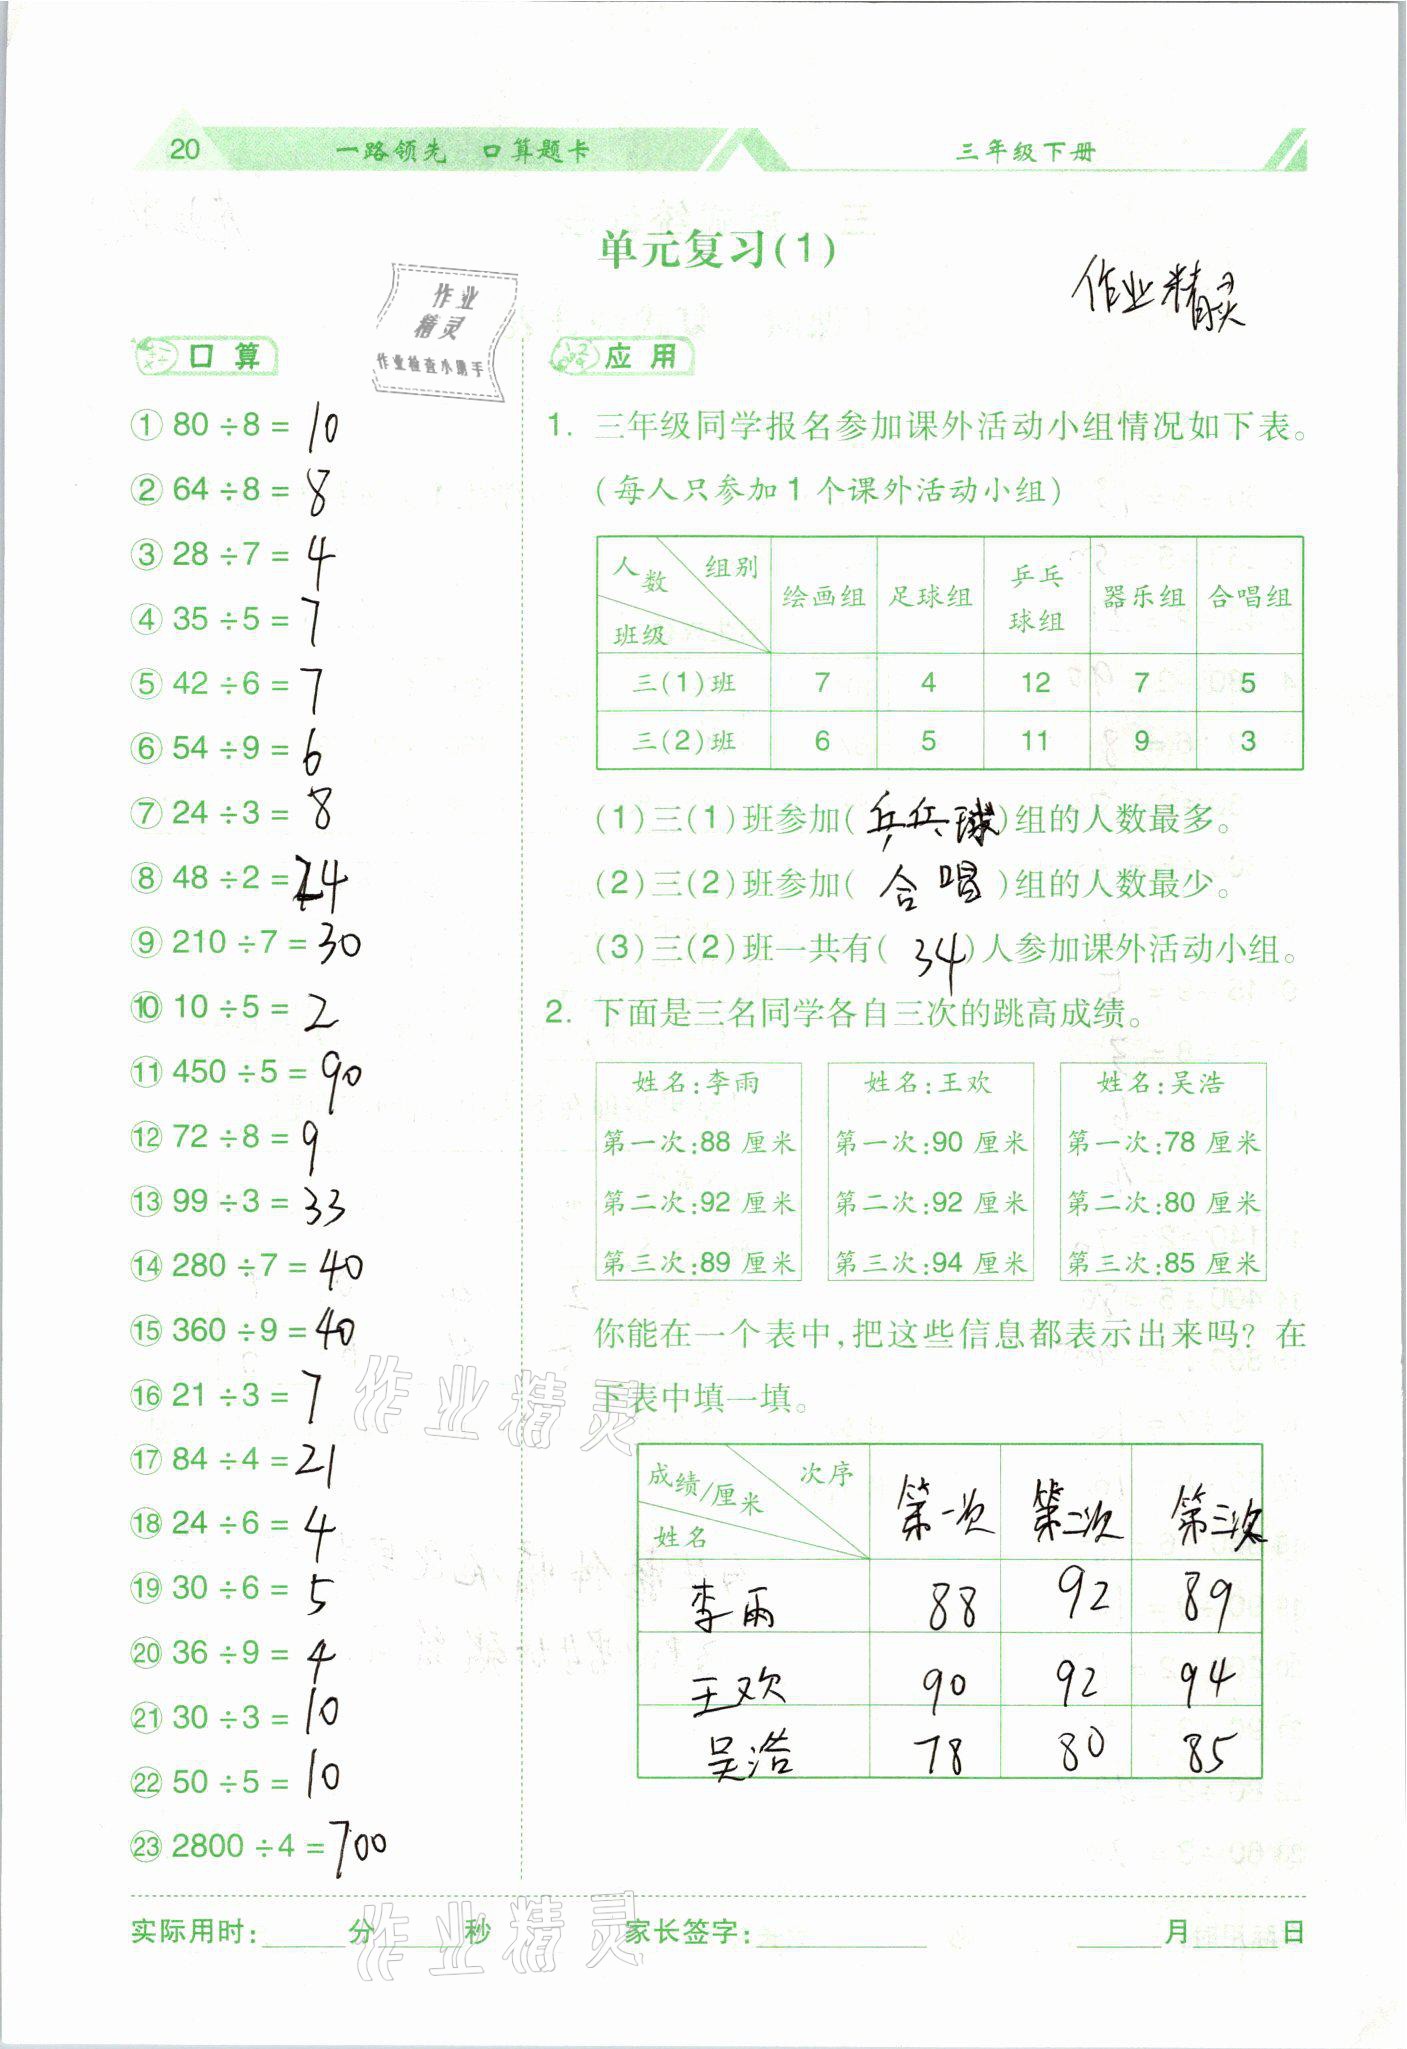 20 一路领先 口算题卡 三年级下册
单元复习(1)
作业精灵
作业
精灵
作业检查小助手
口算
① 80÷8=10
② 64÷8=8
③ 28÷7=4
④ 35÷5=7
⑤ 42÷6=7
⑥ 54÷9=6
⑦ 24÷3=8
⑧ 48÷2=24
⑨ 210÷7=30
⑩ 10÷5=2
⑪ 450÷5=90
⑫ 72÷8=9
⑬ 99÷3=33
⑭ 280÷7=40
⑮ 360÷9=40
⑯ 21÷3=7
⑰ 84÷4=21
⑱ 24÷6=4
⑲ 30÷6=5
⑳ 36÷9=4
㉑ 30÷3=10
㉒ 50÷5=10
㉓ 2800÷4=700
应用
1. 三年级同学报名参加课外活动小组情况如下表。
(每人只参加1个课外活动小组)
人数 组别 班级 绘画组 足球组 乒乓球组 器乐组 合唱组
三(1)班 7 4 12 7 5
三(2)班 6 5 11 9 3
(1)三(1)班参加(乒乓球)组的人数最多。
(2)三(2)班参加(合唱)组的人数最少。
(3)三(2)班一共有(34)人参加课外活动小组。
2. 下面是三名同学各自三次的跳高成绩。
姓名:李雨 姓名:王欢 姓名:吴浩
第一次:88厘米 第一次:90厘米 第一次:78厘米
第二次:92厘米 第二次:92厘米 第二次:80厘米
第三次:89厘米 第三次:94厘米 第三次:85厘米
你能在一个表中,把这些信息都表示出来吗？在
下表中填一填。
成绩/厘米 次序 姓名 第一次 第二次 第三次
李雨 88 92 89
王欢 90 92 94
吴浩 78 80 85
作业精灵
作业精灵
实际用时:____分____秒 家长签字:________ ____月____日